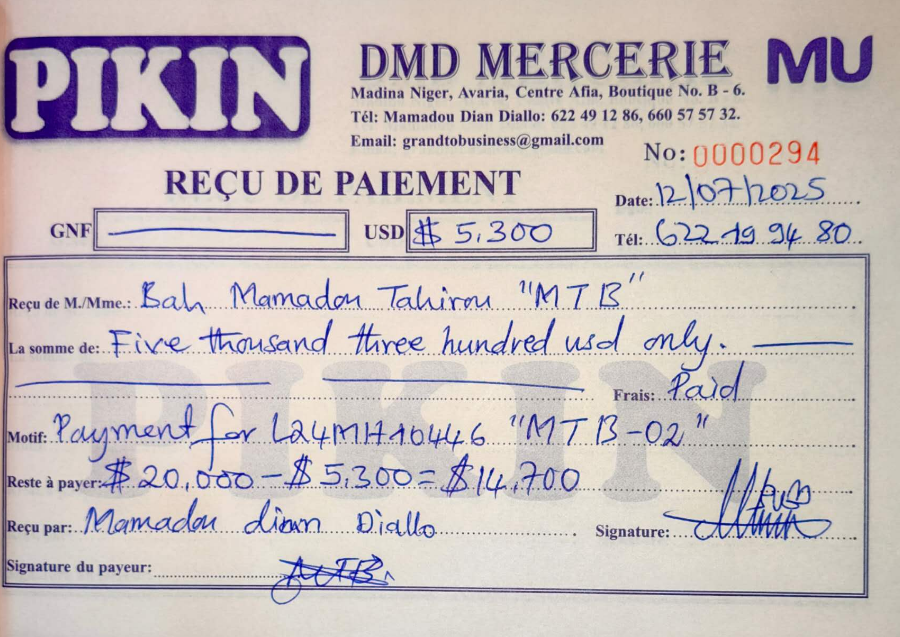 PIKIN
DMD MERCERIE
MU
Madina Niger, Avaria, Centre Afia, Boutique No. B - 6.
Tél: Mamadou Dian Diallo: 622 49 12 86, 660 57 57 32.
Email: grandtobusiness@gmail.com
No: 0000294
REÇU DE PAIEMENT
Date: 12/07/2025
GNF USD $ 5,300
Tél: 622 19 94 80
Reçu de M./Mme.: Bah Mamadou Tahirou "MTB"
La somme de: Five thousand three hundred usd only.
Frais: Paid
PIKIN
Motif: Payment for L24MH10446 "MTB-02"
Reste à payer: $ 20,000 - $ 5,300 = $14,700
Reçu par: Mamadou dian Diallo Signature:
Signature du payeur: MTB